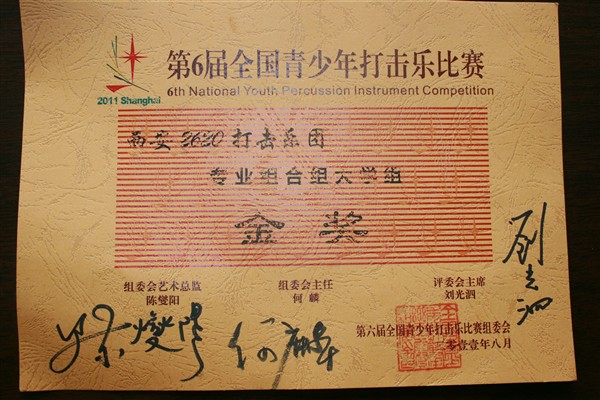 第6届全国青少年打击乐比赛
6th National Youth Percussion Instrument Competition
2011 Shanghai
西安2620打击乐团
专业组合组大学组
金奖
组委会艺术总监 组委会主任 评委会主席
陈燮阳 何麟 刘光泗
陈燮阳 何麟 刘光泗
第六届全国青少年打击乐比赛组委会
零壹壹年八月